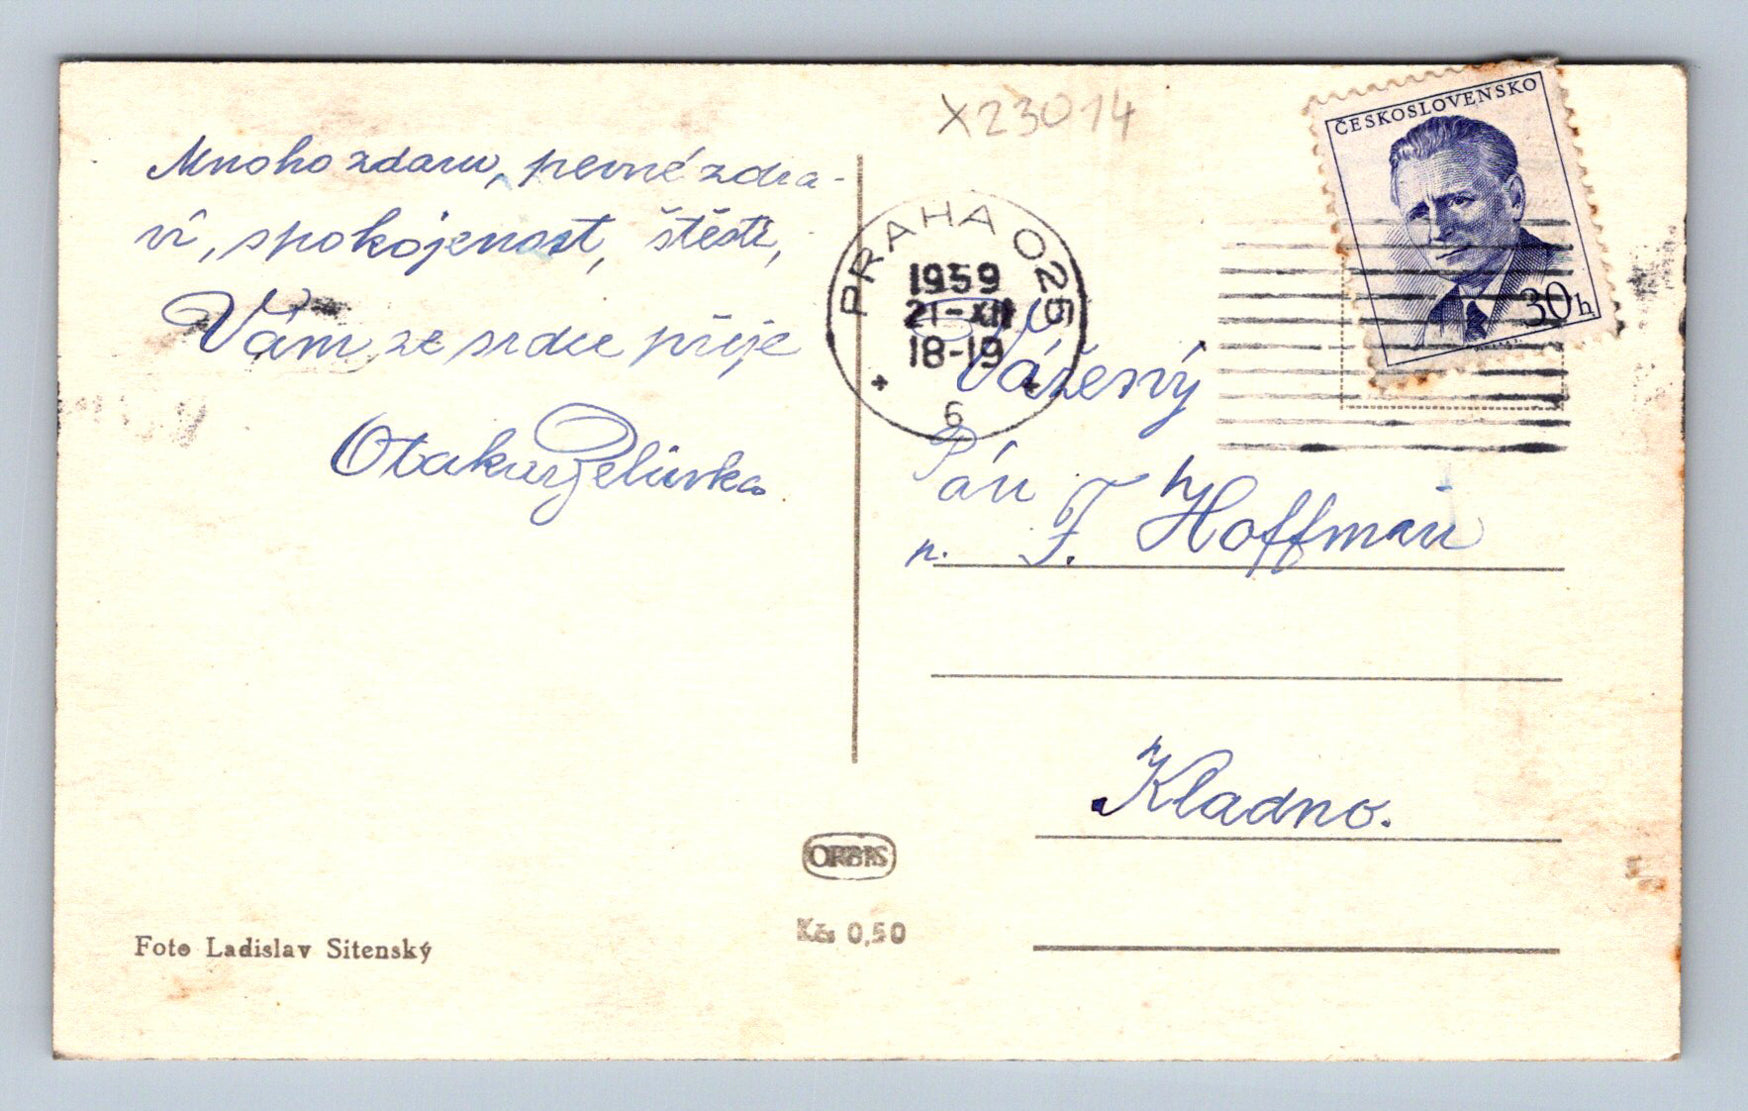 Mnoho zdaru, pevné zdra-
ví, spokojenost, štěstí,
Vám ze srdce přeje
Otakar Zelinka.
X23014
ČESKOSLOVENSKO
30h
PRAHA 025
1959
21-XII
18-19
6
Vážený
Pán
p. F. Hoffman
Kladno.
ORBIS
Kčs 0,50
Foto Ladislav Sitenský